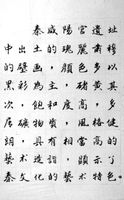 秦咸陽宮遺址
中出土的瑰麗肅穆
的壁画，顏色多以
黑彩為主，赭黃其
次，飽和度高，多
属礦物質，風格健
朗，具有相當高的
藝術造詣，顯示了
秦文化的藝術特色。